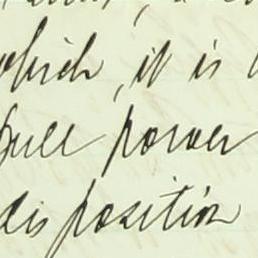 which, it is
full power
disposition